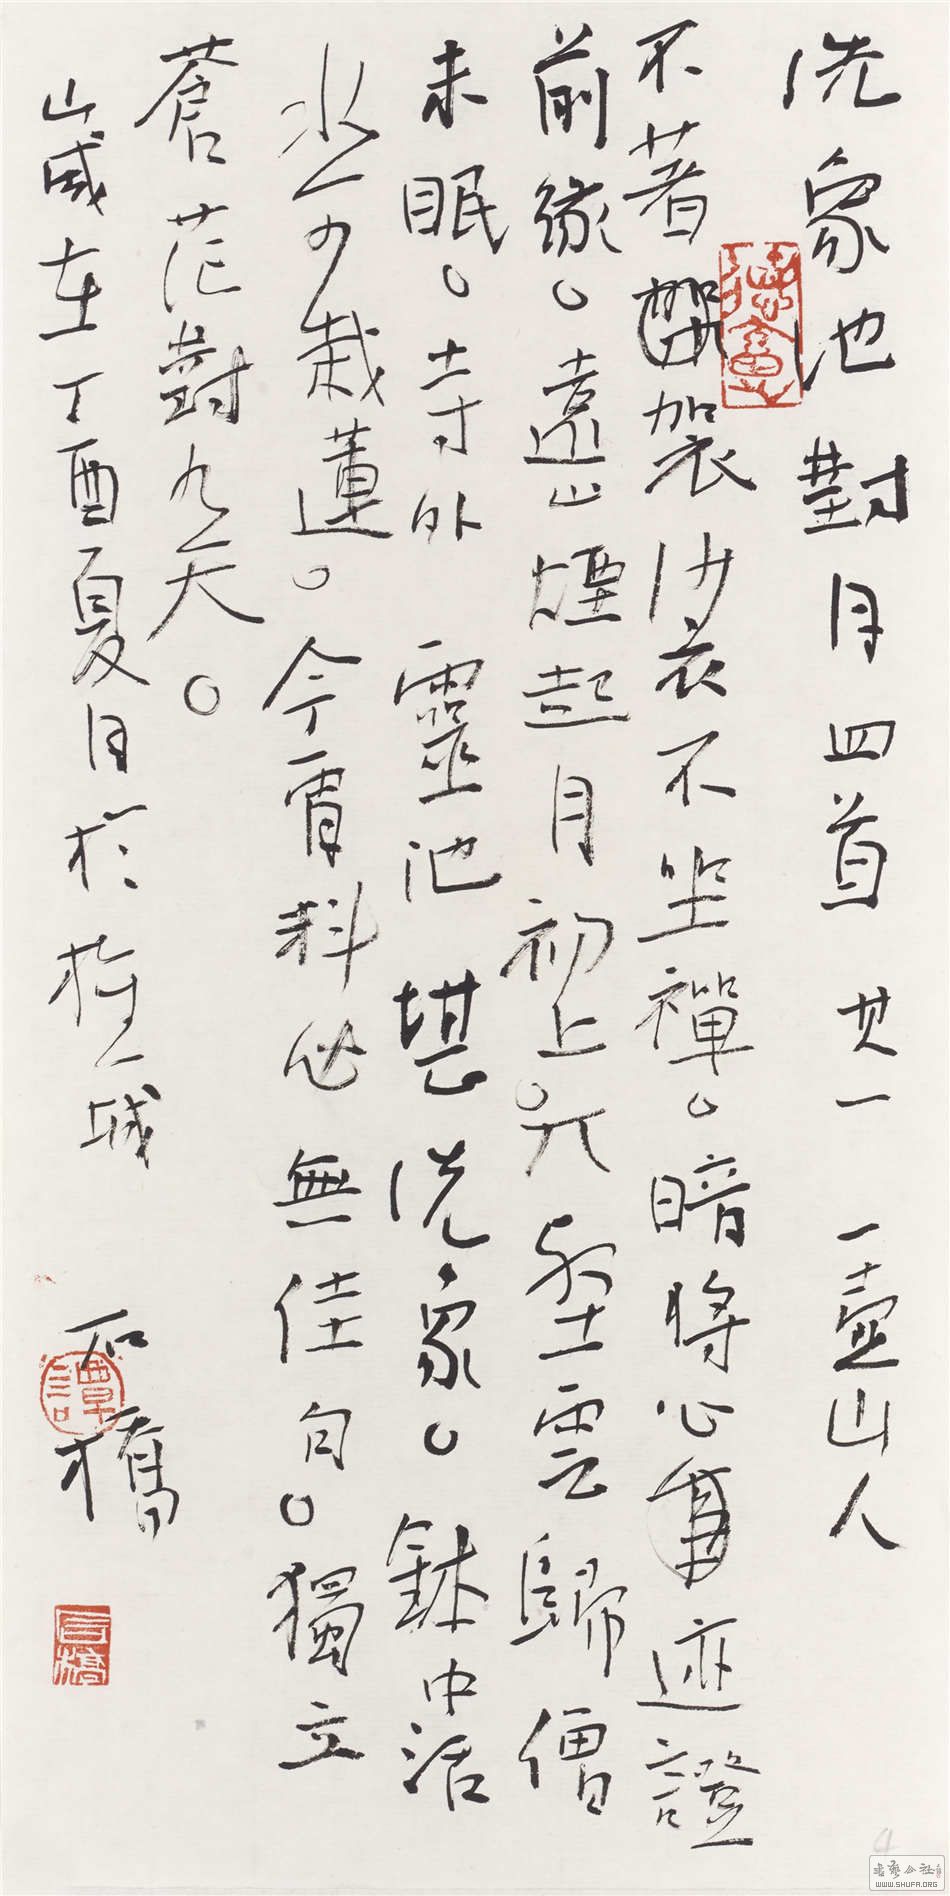 洗象池對月四首 其一 一壺山人
不著袈裟不坐禪。暗將心迹證
前緣。遠山煙起月初上。万壑雲歸僧
未眠。寺外靈池堪洗象。鉢中活
水可栽蓮。今宵料必無佳句。獨立
蒼茫對九天。
歲在丁酉夏月於 城 石橋
譚
石橋
WWW.SHUFA.ORG